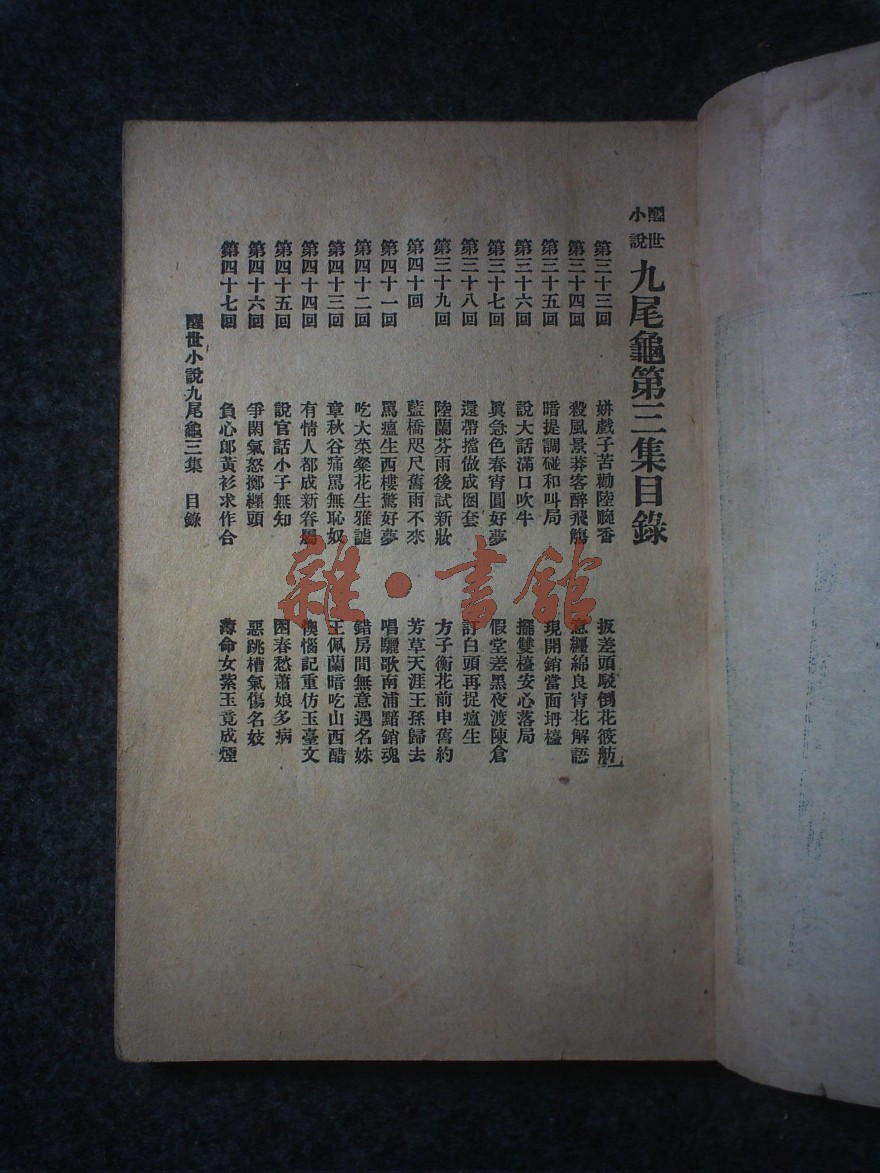 醒世小說 九尾龜第三集目錄
第三十三回 姘戲子苦勸陸畹香 扳差頭駁倒花筱舫
第三十四回 殺風景莽客醉飛觴 意纏綿良宵花解語
第三十五回 暗提調碰和叫局 現開銷當面坍檯
第三十六回 說大話滿口吹牛 擺雙檯安心落局
第三十七回 眞急色春宵圓好夢 假堂差黑夜渡陳倉
第三十八回 還帶擋做成圈套 討白頭再捉瘟生
第三十九回 陸蘭芬雨後試新妝 方子衡花前申舊約
第四十回 藍橋咫尺舊雨不來 芳草天涯王孫歸去
第四十一回 罵瘟生西樓驚好夢 唱驪歌南浦黯銷魂
第四十二回 吃大菜粲花生雅謔 錯房間無意遇名姝
第四十三回 章秋谷痛罵無恥奴 王佩蘭暗吃山西醋
第四十四回 有情人都成新眷屬 懊惱記重仿玉臺文
第四十五回 說官話小子無知 困春愁蕭娘多病
第四十六回 爭閑氣怒擲纏頭 惡跳槽氣傷名妓
第四十七回 負心郎黃衫求作合 薄命女紫玉竟成煙
醒世小說九尾龜三集 目錄
雜·書館